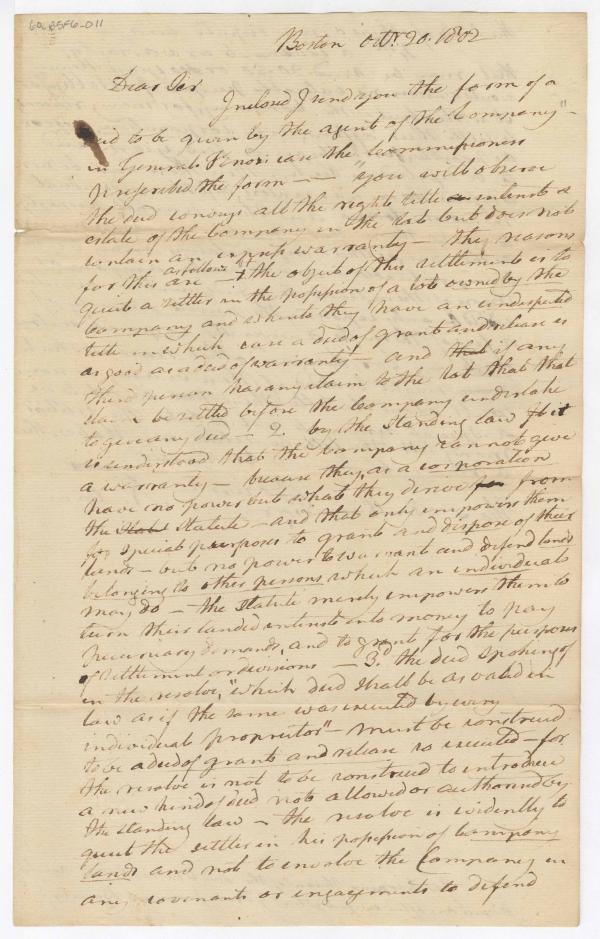 Boston Octr. 20. 1802
Dear Sir
Inclosed I send you the form of a
deed to be given by the agent of the Company"-
in General Knox' case the Commissioners
prescribed the form — — you will observe
the deed conveys all the right title interest &
estate of the Company in the lot but does not
contain an express warranty - the reasons
for this are as follows 1st the object of this settlement is to
quiet a settler in the possession of a lot owned by the
Company and whereto they have an undisputed
title in which case a deed of grant and release is
as good as a deed of warranty - and that if any
third person has any claim to the lot that that
claim be settled before the Company undertake
to give any deed - 2. by the standing law it
is understood that the Company cannot give
a warranty - because they, as a corporation
have no power but what they derive from
the Stat statute - and that only empowers them
for special purposes to grant and dispose of their
lands - but no power to warrant and defend lands
belonging to other persons which an individual
may do - the statute merely empowers them to
turn their landed interests into money to pay
pecuniary demands, and to grant for the purposes
of settlement or divisions - 3d. the deed spoken of
in the resolve, "which deed shall be as valid in
law as if the same was executed by every
individual proprietor" - must be construed
to be a deed of grant and release so executed - for
the resolve is not to be construed to introduce
a new kind of deed not allowed or authorised by
the standing law - the resolve is evidently to
quiet the settler in his possession of Company
lands and not to involve the Company in
any covenants or engagements to defend